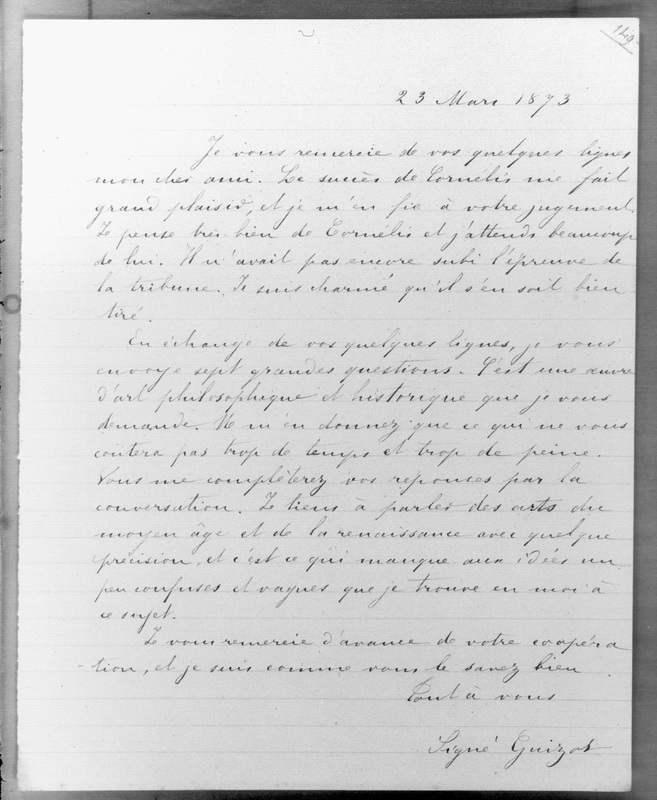 149
23 Mars 1873
Je vous remercie de vos quelques lignes
mon cher ami. Le succès de Cornélis me fait
grand plaisir, et je m'en fie à votre jugement.
Je pense très bien de Cornélis et j'attends beaucoup
de lui. Il n'avait pas encore subi l'épreuve de
la tribune. Je suis charmé qu'il s'en soit bien
tiré.
En échange de vos quelques lignes, je vous
envoye sept grandes questions. C'est une œuvre
d'art philosophique et historique que je vous
demande. Ne m'en donnez que ce qui ne vous
coûtera pas trop de temps et trop de peine.
Vous me complèterez vos réponses par la
conversation. Je tiens à parler des arts du
moyen âge et de la renaissance avec quelque
précision, et c'est ce qui manque aux idées un
peu confuses et vagues que je trouve en moi à
ce sujet.
Je vous remercie d'avance de votre coopéra
-tion, et je suis comme vous le savez bien
Tout à vous
Signé Guizot